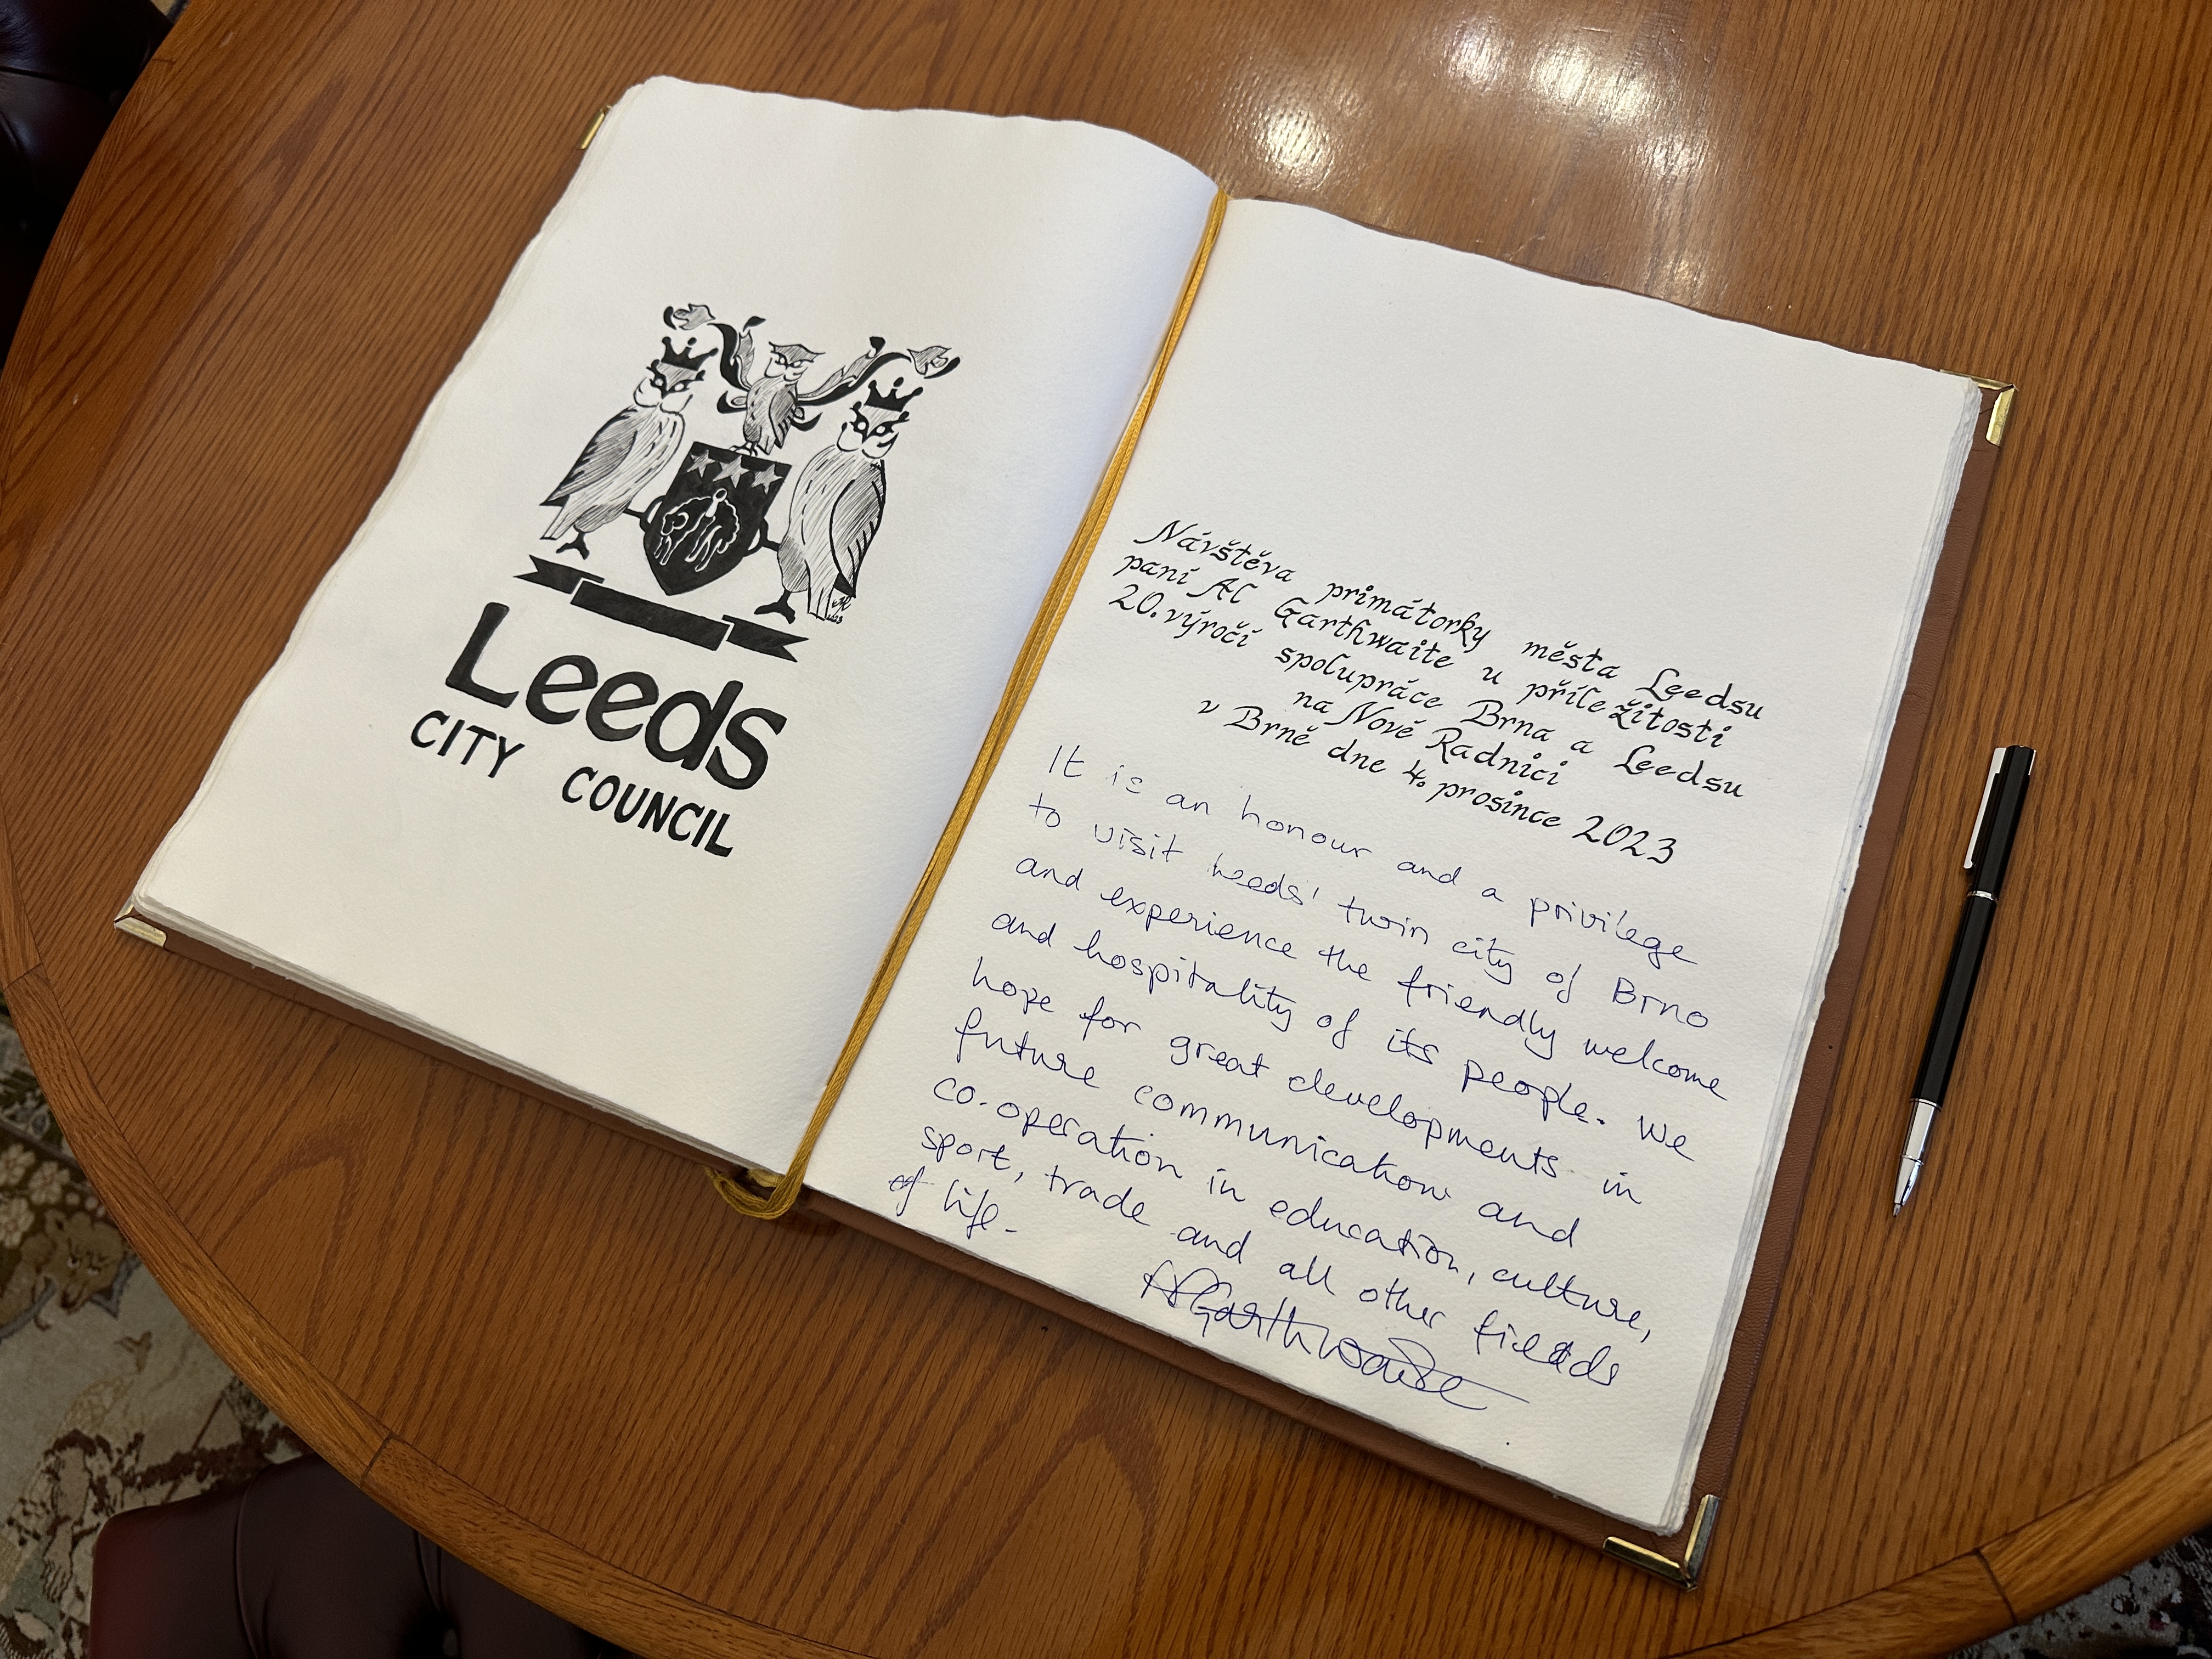 Leeds
CITY COUNCIL
Návštěva primátorky města Leedsu
paní Al Garthwaite u příležitosti
20. výročí spolupráce Brna a Leedsu
na Nové Radnici
v Brně dne 4. prosince 2023
It is an honour and a privilege
to visit Leeds' twin city of Brno
and experience the friendly welcome
and hospitality of its people. We
hope for great developments in
future communication and
co-operation in education, culture,
sport, trade and all other fields
of life.
Al Garthwaite